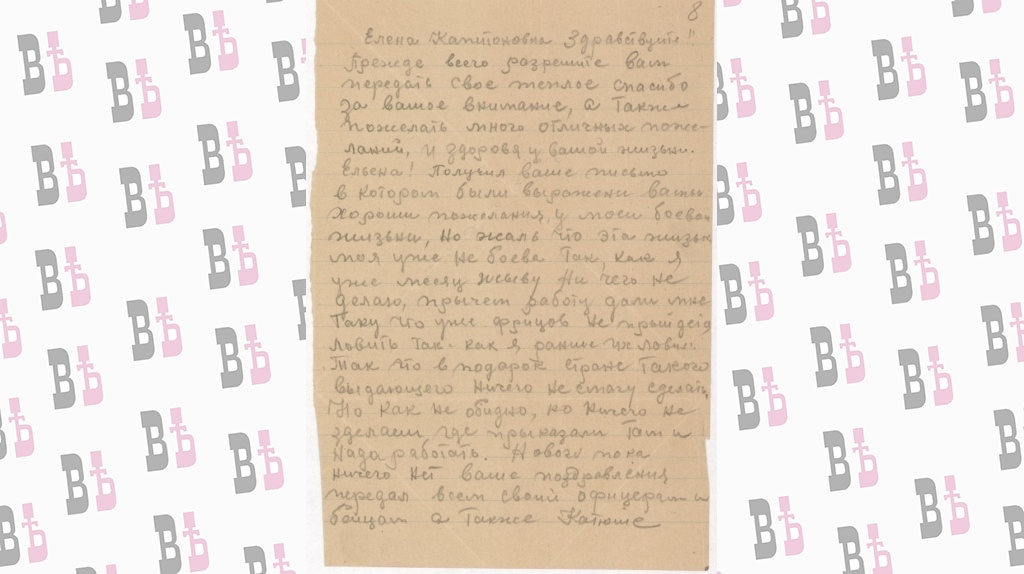 8
Елена Капитоновна Здравствуйте!!
Прежде всего разрешите вам
передать свое теплое спасибо
за вашое внимание, а Также
пожелать много отличных поже-
ланий, и здоровя у вашой жизьни.
Ельена! Получил ваше письмо
в котором были выражени ваши
хороши пожелания, у моей боевой
жизьни, Но жаль что эта жизьнь
моя уже не боева Так, как я
уже месяц жыву Ни чего не
делаю, прычем работу дали мне
Таку что уже фрицов не прыйдеця
ловить Так как я раньше их ловил.
Так что в подарок стране Такого
выдающего ничего не смогу сделать,
Но как не обидно, но ничего не
зделаеш где прыказали Там и
Нада работать. Нового пока
ничего нет ваше поздравления
передал всем своим офицерам и
бойцам а Также Катюше
ВѢ